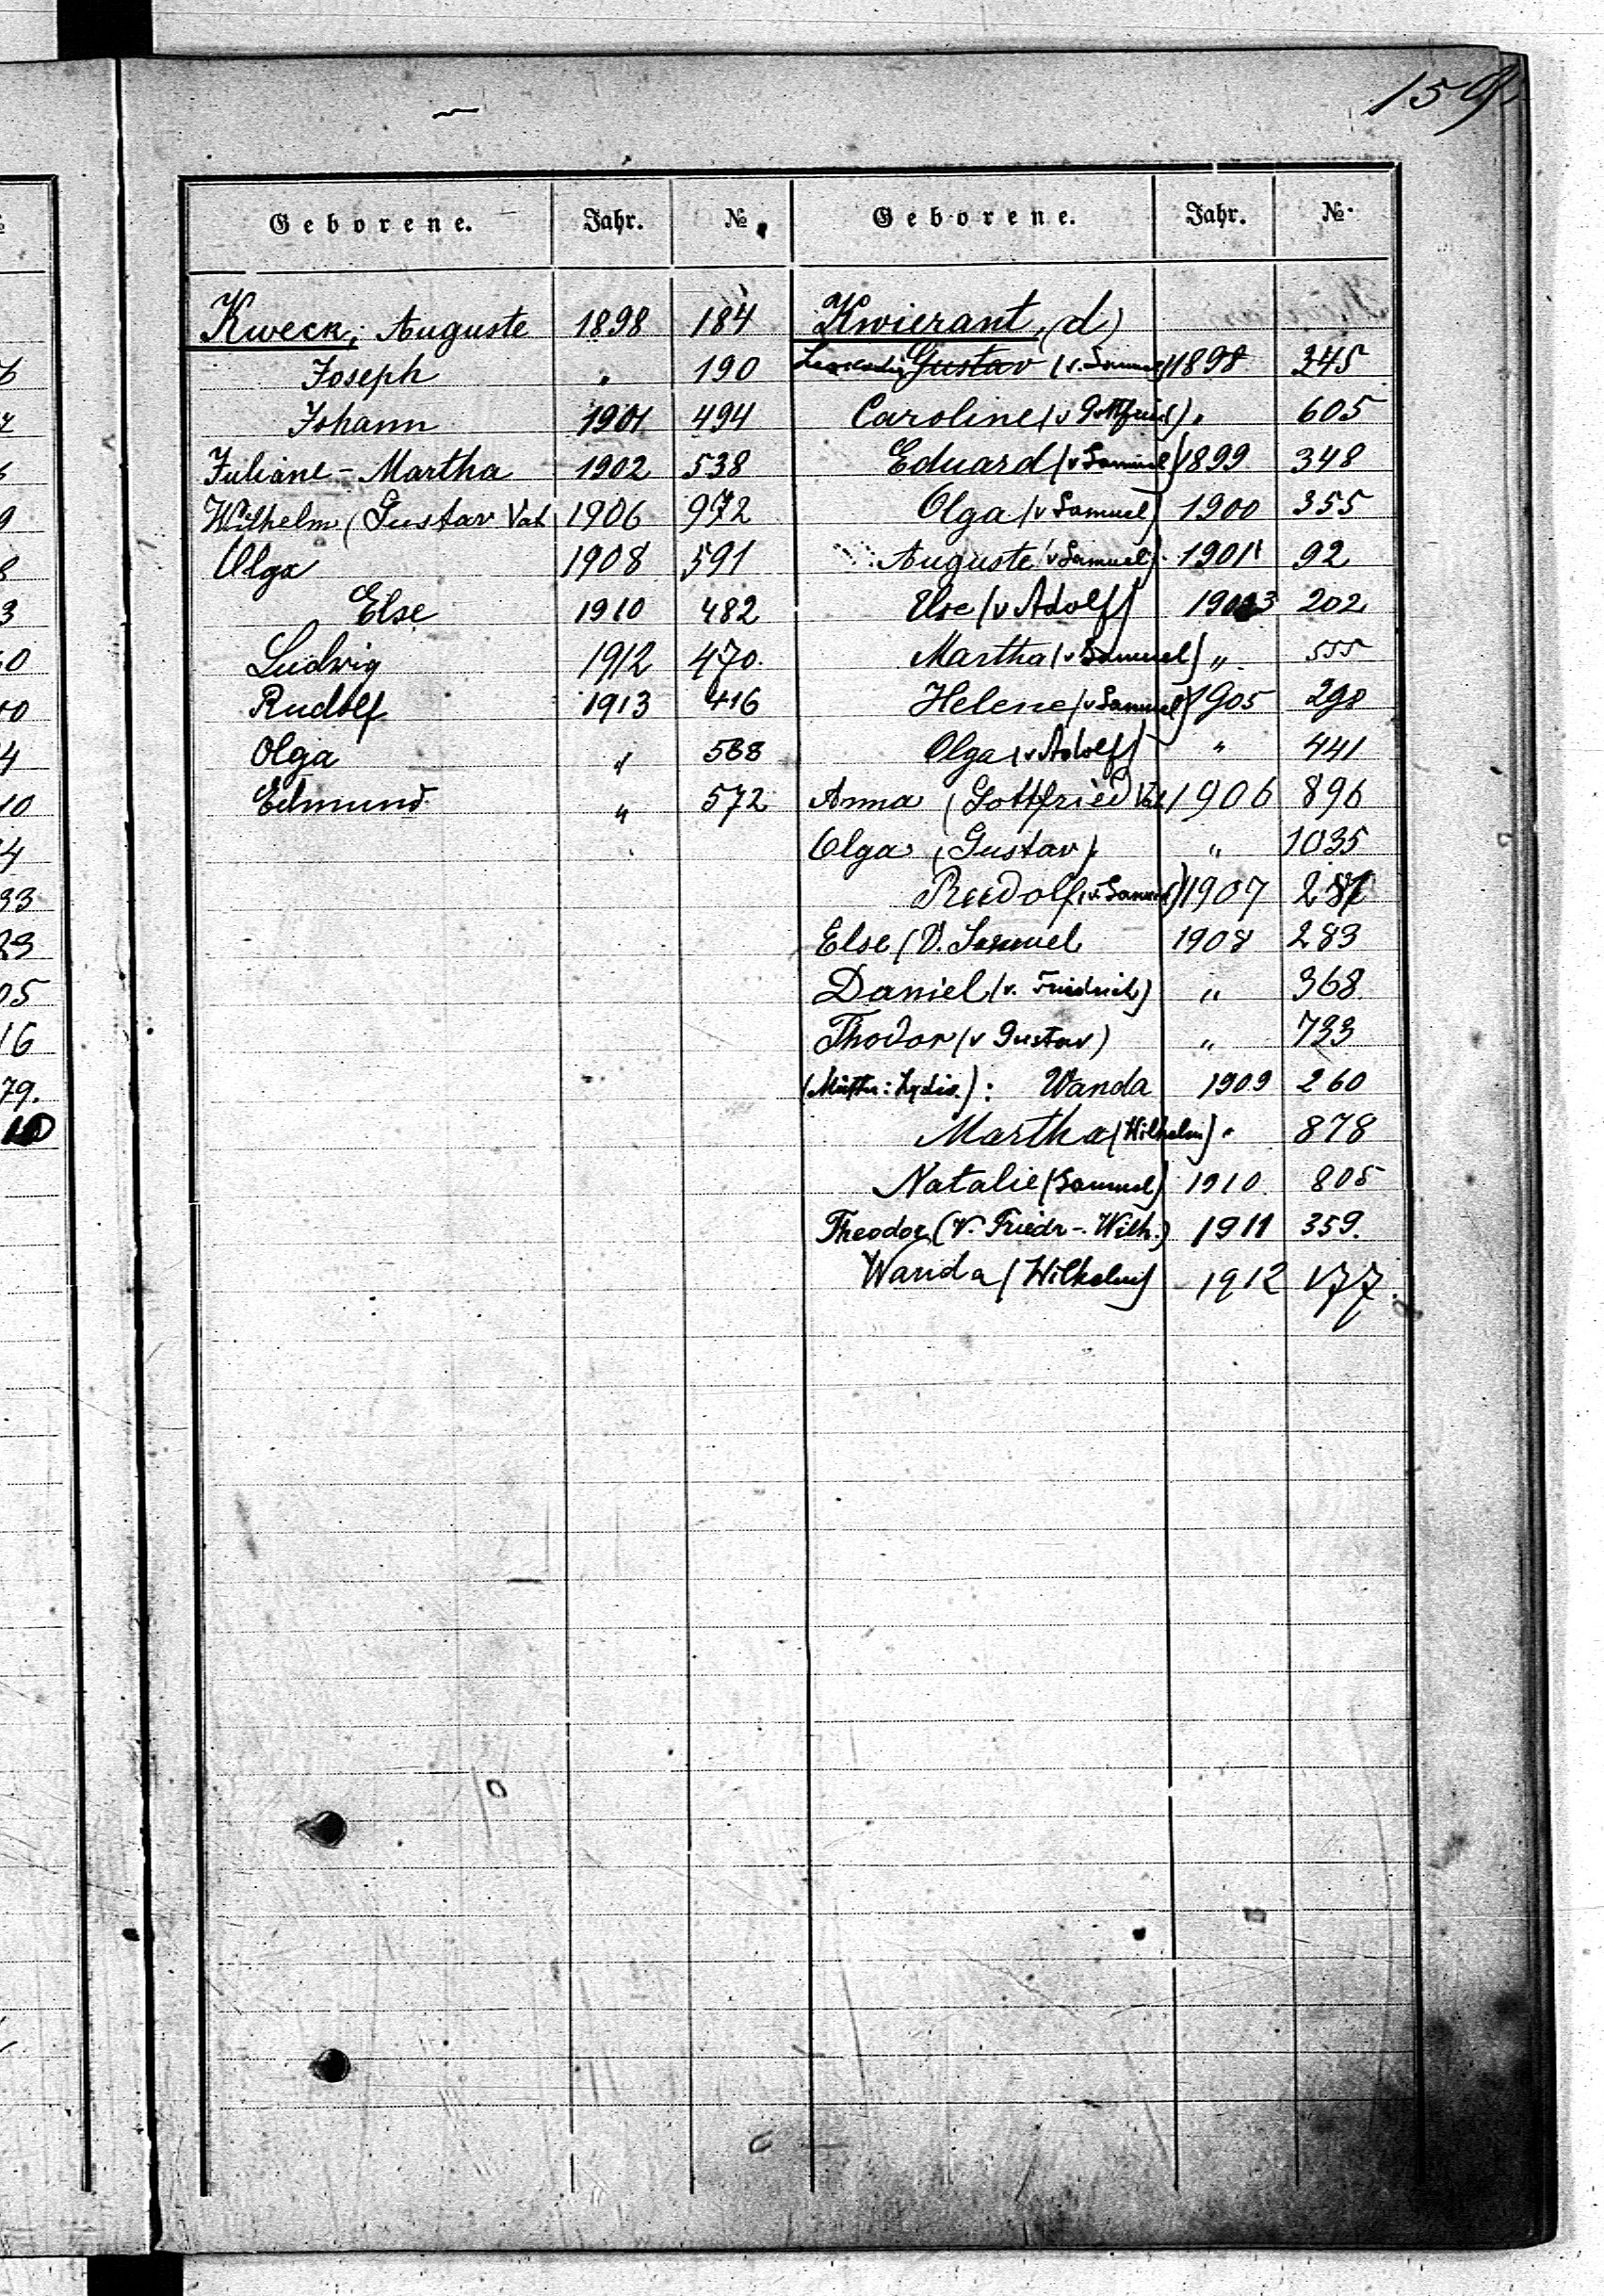 159.
Geborene. Jahr. № Geborene. Jahr. №
Kweck; Auguste 1898 184
Joseph " 190
Johann 1901 494
Juliane - Martha 1902 538
Wilhelm (Gustav Vat. 1906 972
Olga 1908 591
Else 1910 482
Ludwig 1912 470.
Rudolf 1913 416
Olga " 568
Edmund " 572
Kwierant, (d)
Gustav (v. Samuel) 1898 345
Caroline (v Gottfried) " 605
Eduard (v Samuel) 1899 348
Olga (v Samuel) 1900 355
Auguste (v Samuel) 1901 92
Else (v Adolf) 1903 202
Martha (v Samuel) " 555
Helene (v Samuel) 1905 298
Olga (v Adolf) " 441
Anna (Gottfried Vat. 1906 896
Olga (Gustav) " 1035
Rudolf (v. Samuel) 1907
Else (V. Samuel 1908 283
Daniel (v. Friedrich) " 368
Thodor (v Gustav) " 733
(Mutter: Lydia.): Wanda 1909 260
Martha (Wilhelm) " 878
Natalie (Samuel) 1910 805
Theodor (V. Friedr-. Wilh.) 1911 359.
Wanda (Wilhelm) 1912 177.